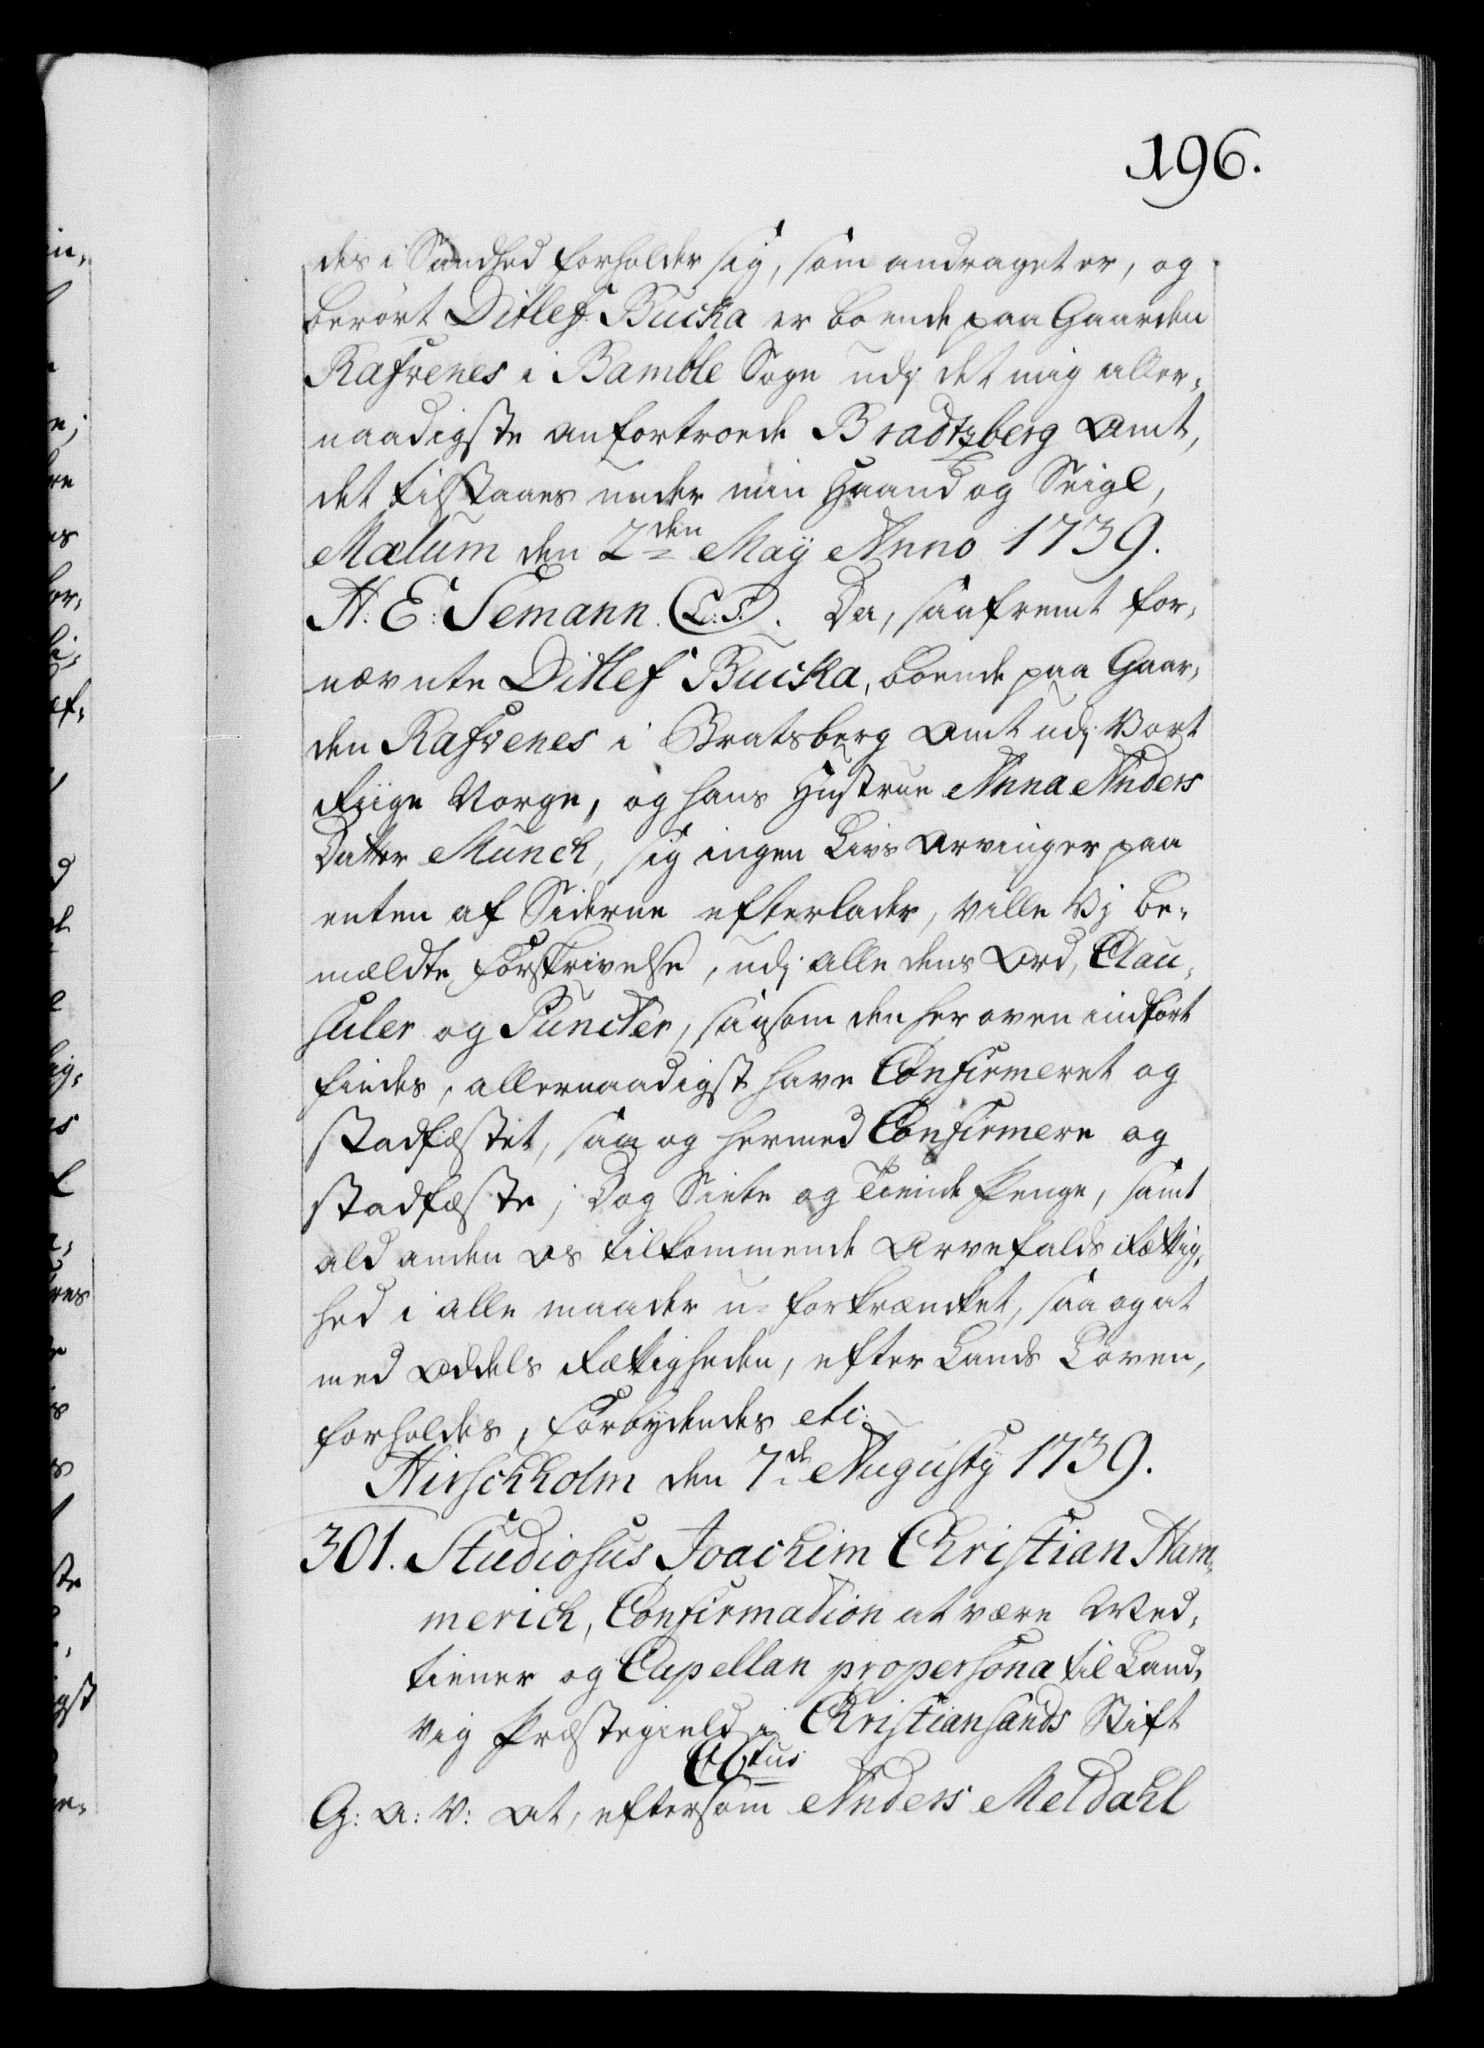 196.
des i Sandhed forholder sig, som andraget er, og
berørt Ditlef Bucka er boende paa Gaarden
Rafvenes i Bamble Sogn udj det mig aller-
naadigste anfortroede Bradtzberg Amt,
det tilstaaes under min Haand og Seigl,
Mælum den 2den May Anno 1739.
H: E: Semann. (L: S.). Da, saafremt for-
nævnte Ditlef Bucka, boende paa Gaar-
den Rafvenes i Bratsberg Amt udj Vort
Riige Norge, og hans Hustrue Anna Anders
Datter Munch, sig ingen Livs Arvinger paa
enten af Siderne efterlader, ville Vj be-
mældte Forskrivelse, udj alle dens Ord, Clau-
suler og Puncter, saasom den her oven indført
findes, allernaadigst have Confirmeret og
stadfæstet, saa og hermed Confirmere og
stadfæste; Dog Siette og Tiende Penge, samt
ald anden Os tilkommende Arvefalds Rættig-
hed i alle maader u-forkræncket, saa og at
med Oddels Rettigheden, efter Lands Loven,
forholdes, Forbydendes etc:
Hirschholm den 7de Augusty 1739.
301. Studiosus Joachim Christian Ham-
merich, Confirmation at være Med-
tiener og Capellan propersona til Land-
vig Præstegield i Christiansands Stift
Ctus
G: A: V: At, eftersom Anders Meldahl